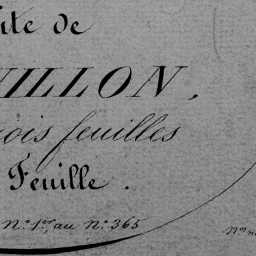 ite de
ILLON,
ois feuilles
Feuille.
N.º 1.er au N.º 365
N.os